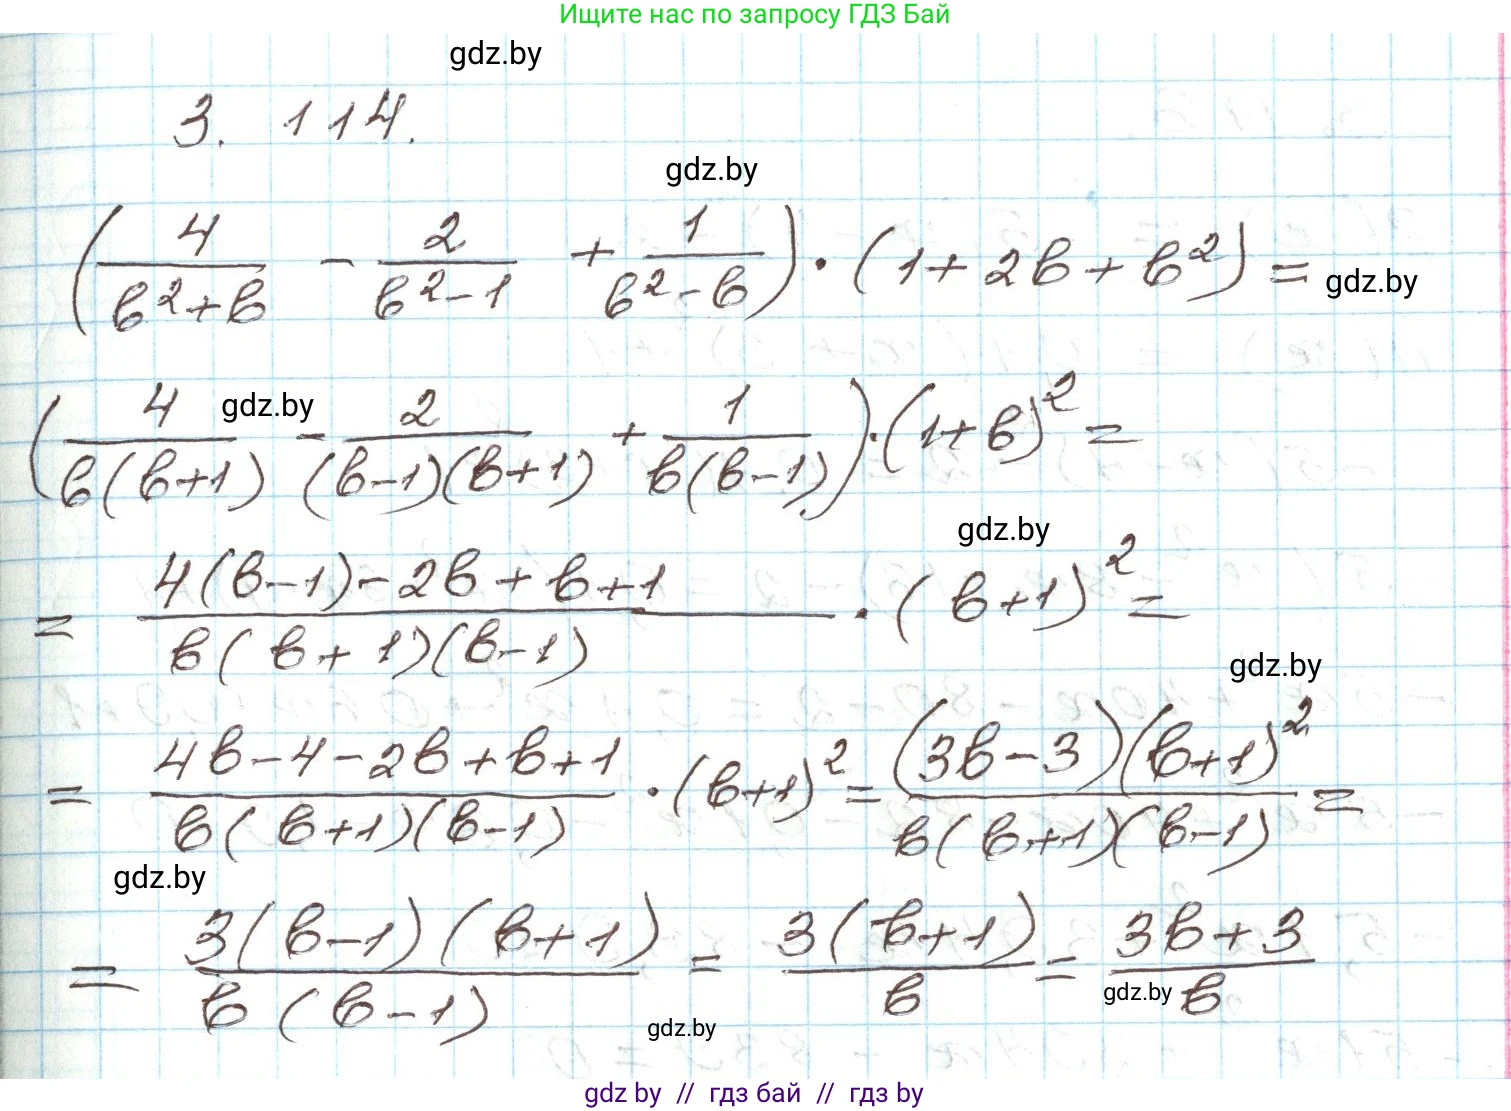 Ищите нас по запросу ГДЗ Бай
gdz.by
3. 114.
gdz.by
(4/(b²+b) - 2/(b²-1) + 1/(b²-b)) · (1+2b+b²) =
gdz.by
(4/(b(b+1)) - 2/((b-1)(b+1)) + 1/(b(b-1))) · (1+b)² =
gdz.by
gdz.by
= (4(b-1)-2b+b+1)/(b(b+1)(b-1)) · (b+1)² =
gdz.by
= (4b-4-2b+b+1)/(b(b+1)(b-1)) · (b+1)² = ((3b-3)(b+1)²)/(b(b+1)(b-1)) =
gdz.by
= (3(b-1)(b+1))/(b(b-1)) = (3(b+1))/b = (3b+3)/b
gdz.by
gdz.by
gdz.by // гдз бай // гдз by